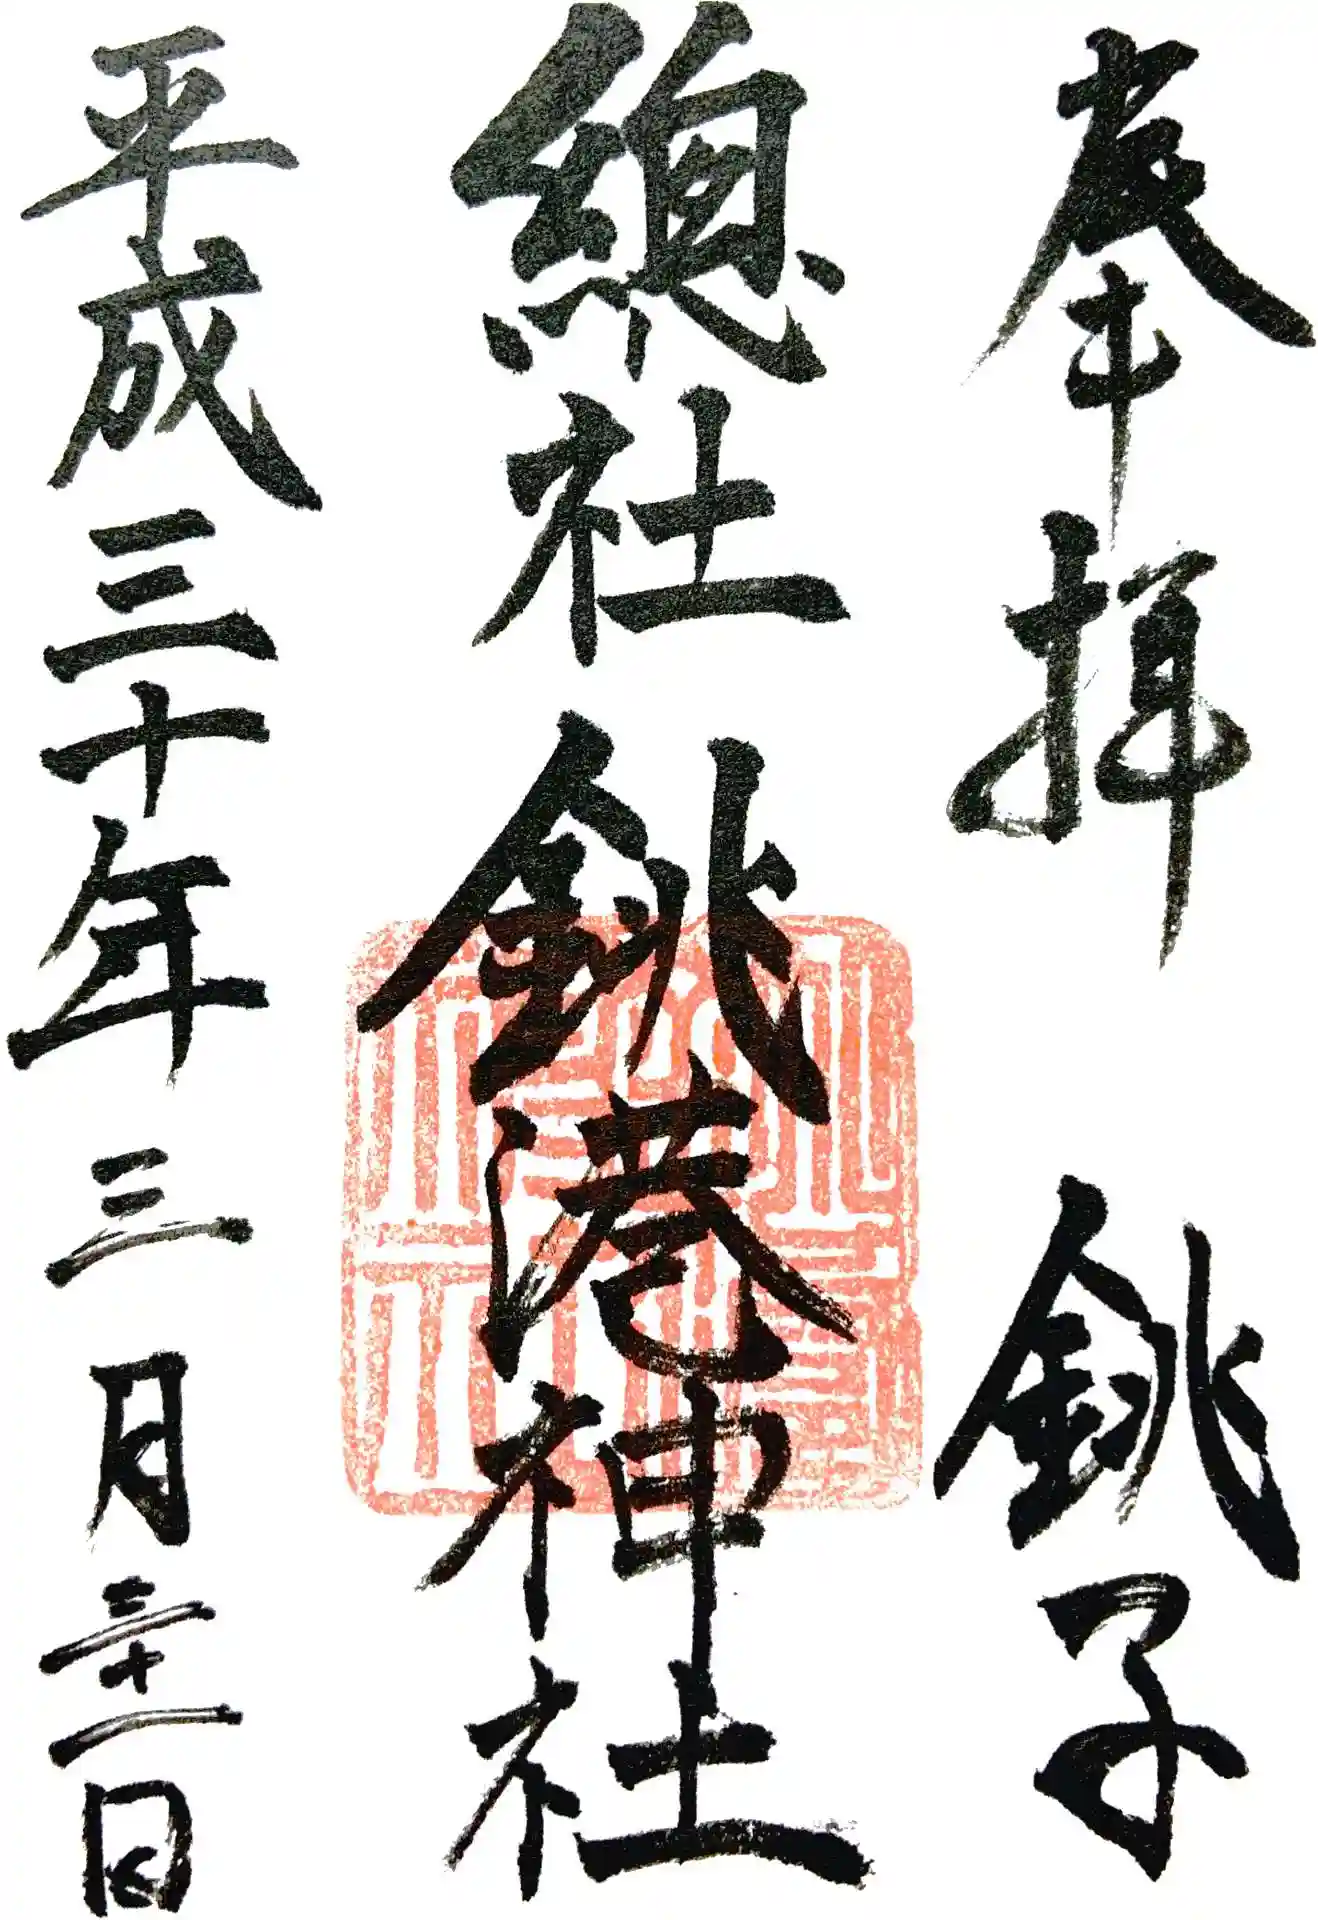 奉拝 銚子
總社 銚港神社
平成三十年 三月三十一日